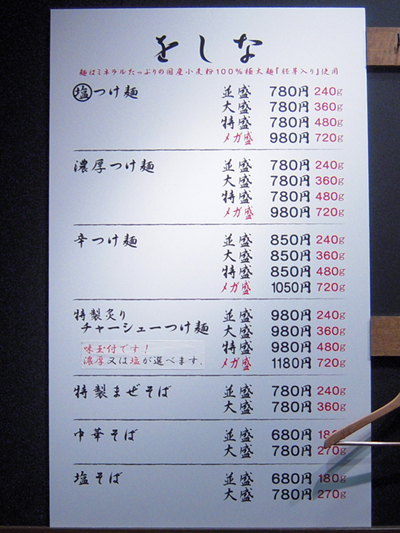 をしな
麺はミネラルたっぷりの国産小麦粉100%極太麺『胚芽入り』使用
塩つけ麺 並盛 780円 240g
大盛 780円 360g
特盛 780円 480g
メガ盛 980円 720g
濃厚つけ麺 並盛 780円 240g
大盛 780円 360g
特盛 780円 480g
メガ盛 980円 720g
辛つけ麺 並盛 850円 240g
大盛 850円 360g
特盛 850円 480g
メガ盛 1050円 720g
特製炙り 並盛 980円 240g
チャーシューつけ麺 大盛 980円 360g
味玉付です! 特盛 980円 480g
濃厚又は塩が選べます。 メガ盛 1180円 720g
特製まぜそば 並盛 780円 240g
大盛 780円 360g
中華そば 並盛 680円 180g
大盛 780円 270g
塩そば 並盛 680円 180g
大盛 780円 270g